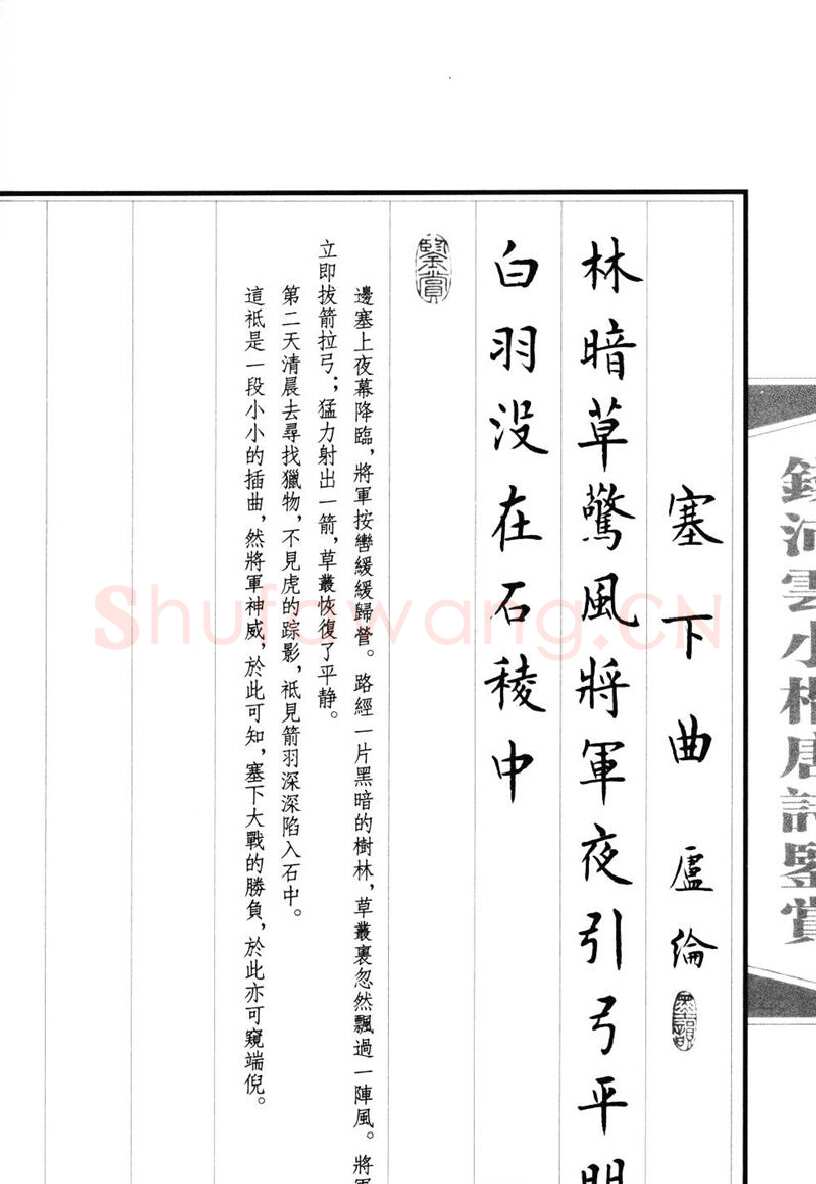 錢沛雲小楷唐詩鑒賞
塞下曲 盧綸
林暗草驚風將軍夜引弓平明
白羽没在石稜中
鑒賞
邊塞上夜幕降臨，將軍按轡緩緩歸營。路經一片黑暗的樹林，草叢裏忽然飄過一陣風。將軍
立即拔箭拉弓；猛力射出一箭，草叢恢復了平静。
第二天清晨去尋找獵物，不見虎的踪影，祇見箭羽深深陷入石中。
這祇是一段小小的插曲，然將軍神威，於此可知，塞下大戰的勝負，於此亦可窺端倪。
Shufawang.CN